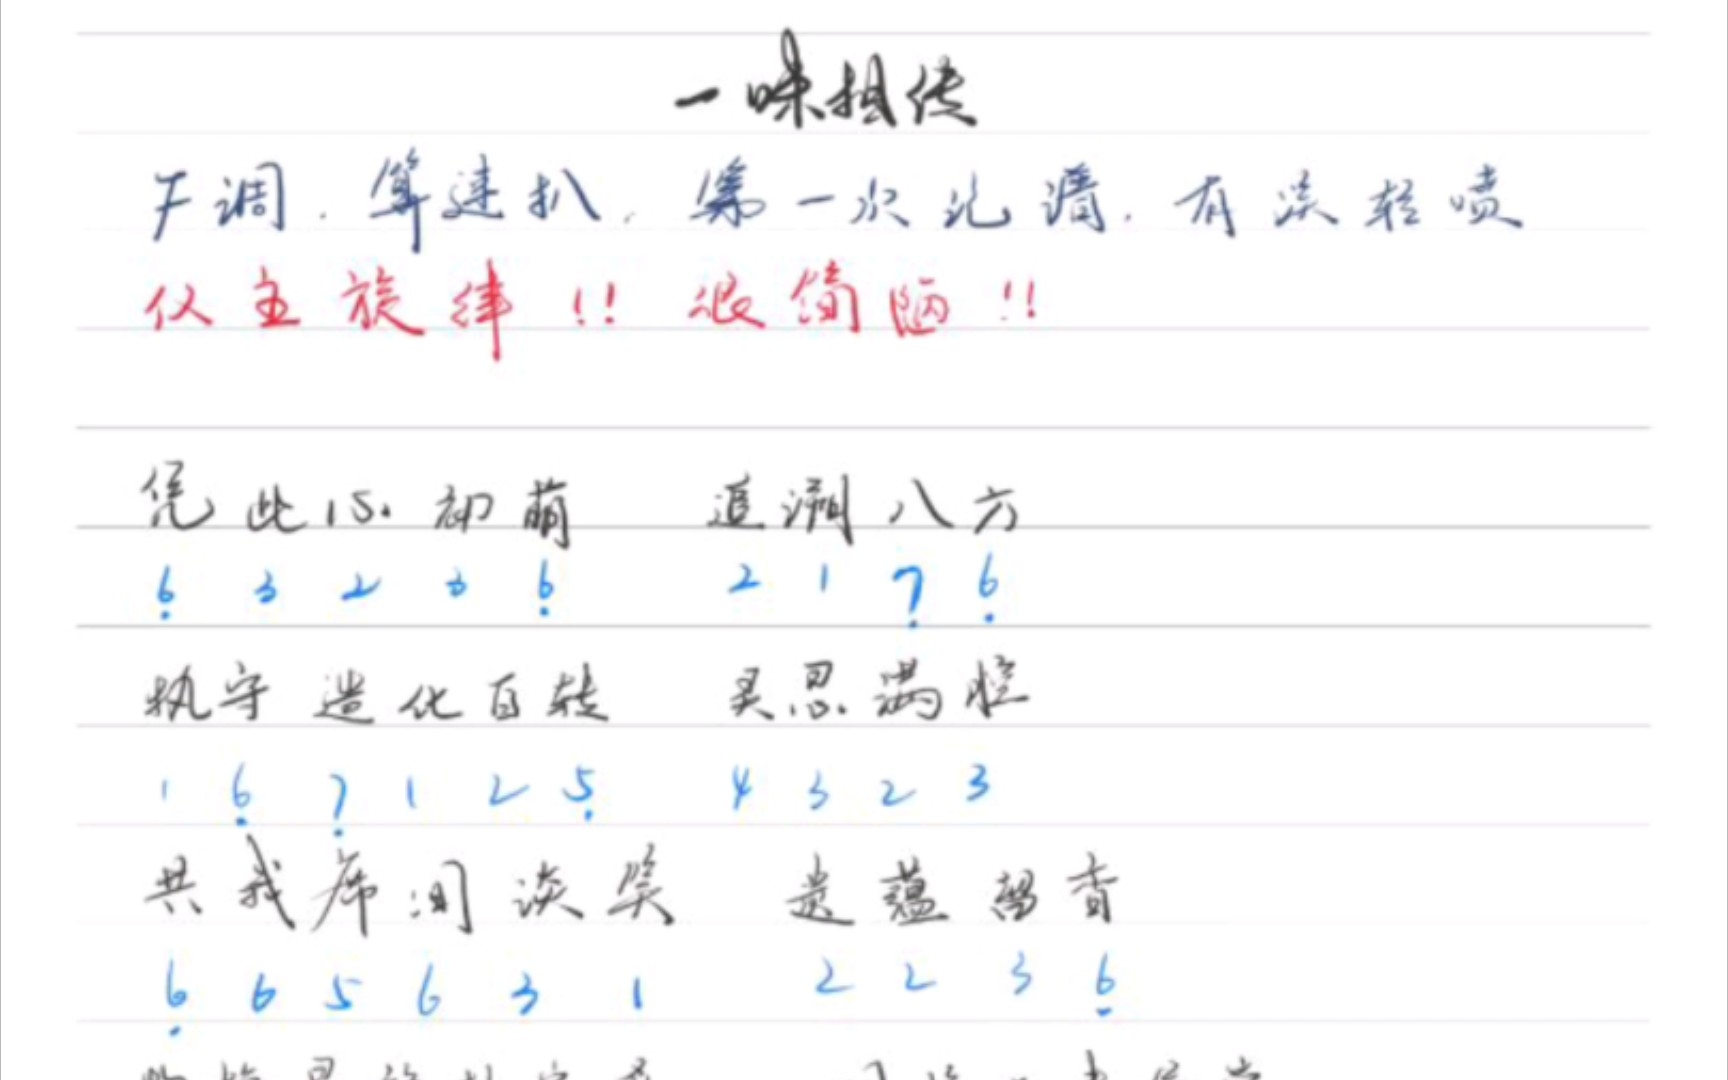 一味相传
F调.算速扒.第一次记谱.有误轻喷
仅主旋律!!很简陋!!
凭此心初萌 追溯八方
6̣ 3 2 3 6̣ 2 1 7̣ 6̣
执守造化自转 灵思满腔
1 6̣ 7̣ 1 2 5̣ 4 3 2 3
共我席间谈笑 遗蕴留香
6̣ 6 5 6 3 1 2 2 3 6̣